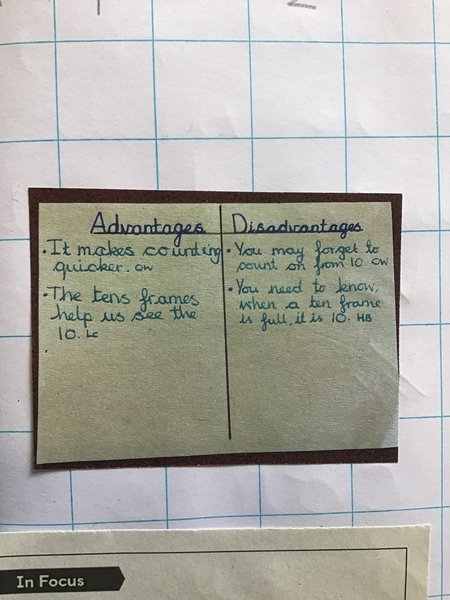 Advantages
· It makes counting
quicker. OW
· The tens frames
help us see the
10. LC
Disadvantages
· You may forget to
count on from 10. OW
· You need to know,
when a ten frame
is full, it is 10. HB
In Focus